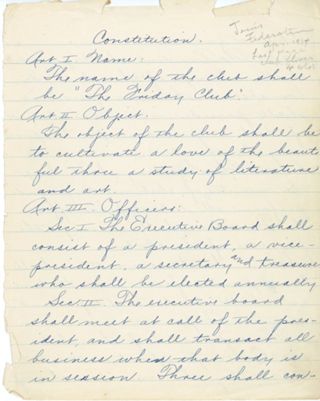 Join
Federation
Apr. 1914
Constitution.
Art. I. Name:
The name of the club shall
be "The Friday Club".
Art. II Object.
The object of the club shall be
to cultivate a love of the beaut
ful thro a study of literature
and art.
Art. III. Officers:
Sec I The Executive Board shall
consist of a president, a vice-
president, a secretary and treasure
who shall be elected annually
Sec. II. The executive board
shall meet at call of the pres-
ident, and shall transact all
business when that body is
in session Three shall con-